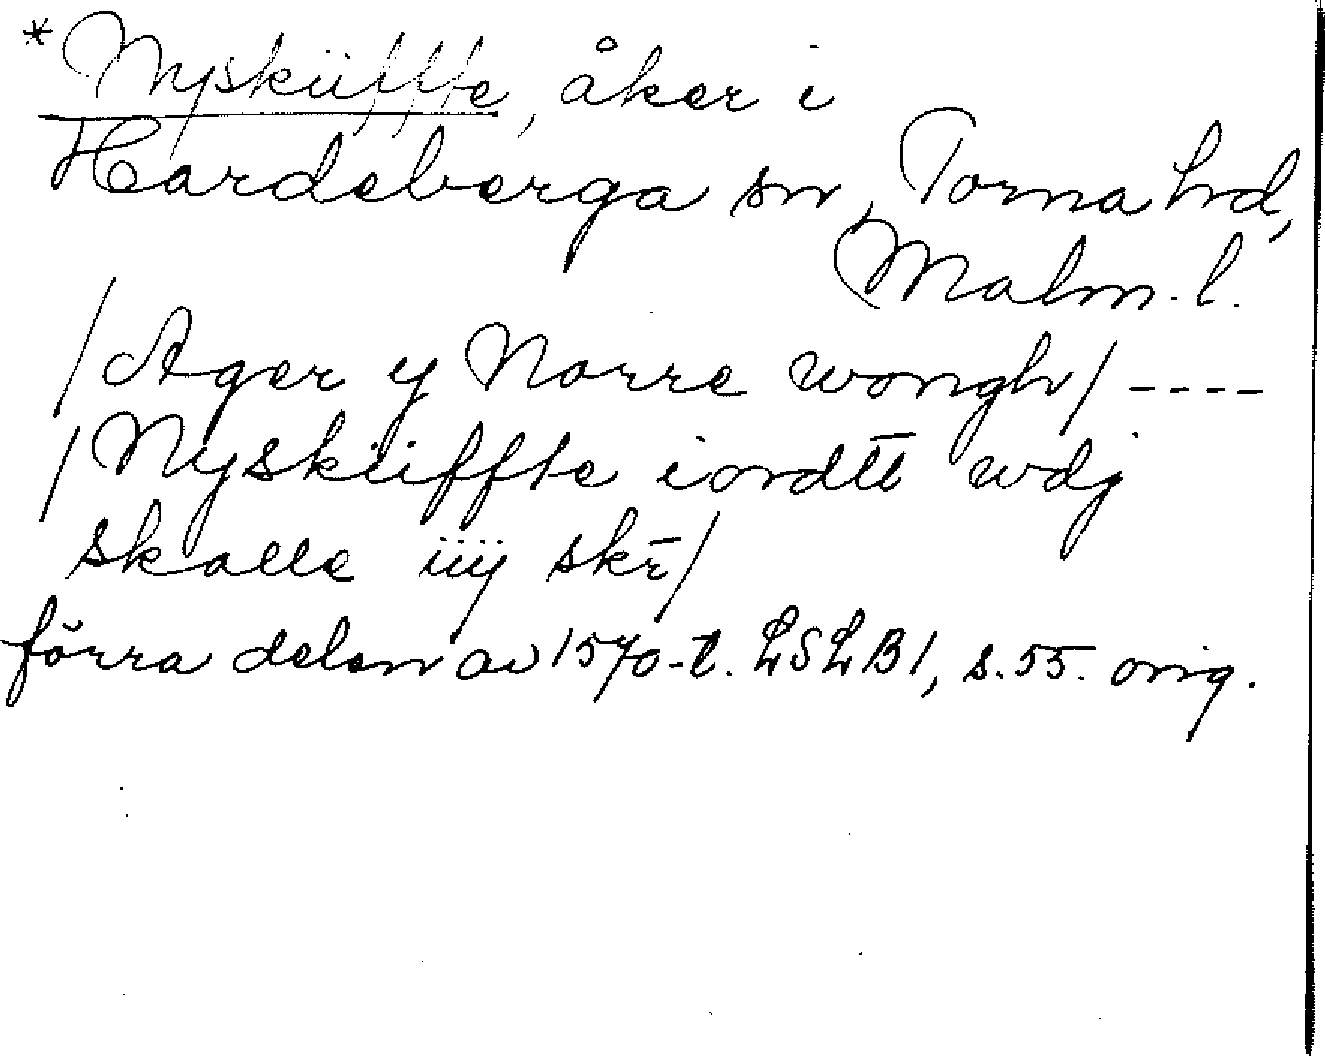 *Nysküffte, åker i
Hardeberga sn, Torna hrd,
Malm. l.
/Ager y Norre wongh/ ----
/Nysküffte iordtt wdj
skalle iiij skr̄/
förra delen av 1570-t. LSLB1, s. 55. orig.